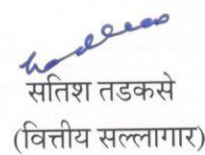 सतिश तडकसे
(वित्तीय सल्लागार)